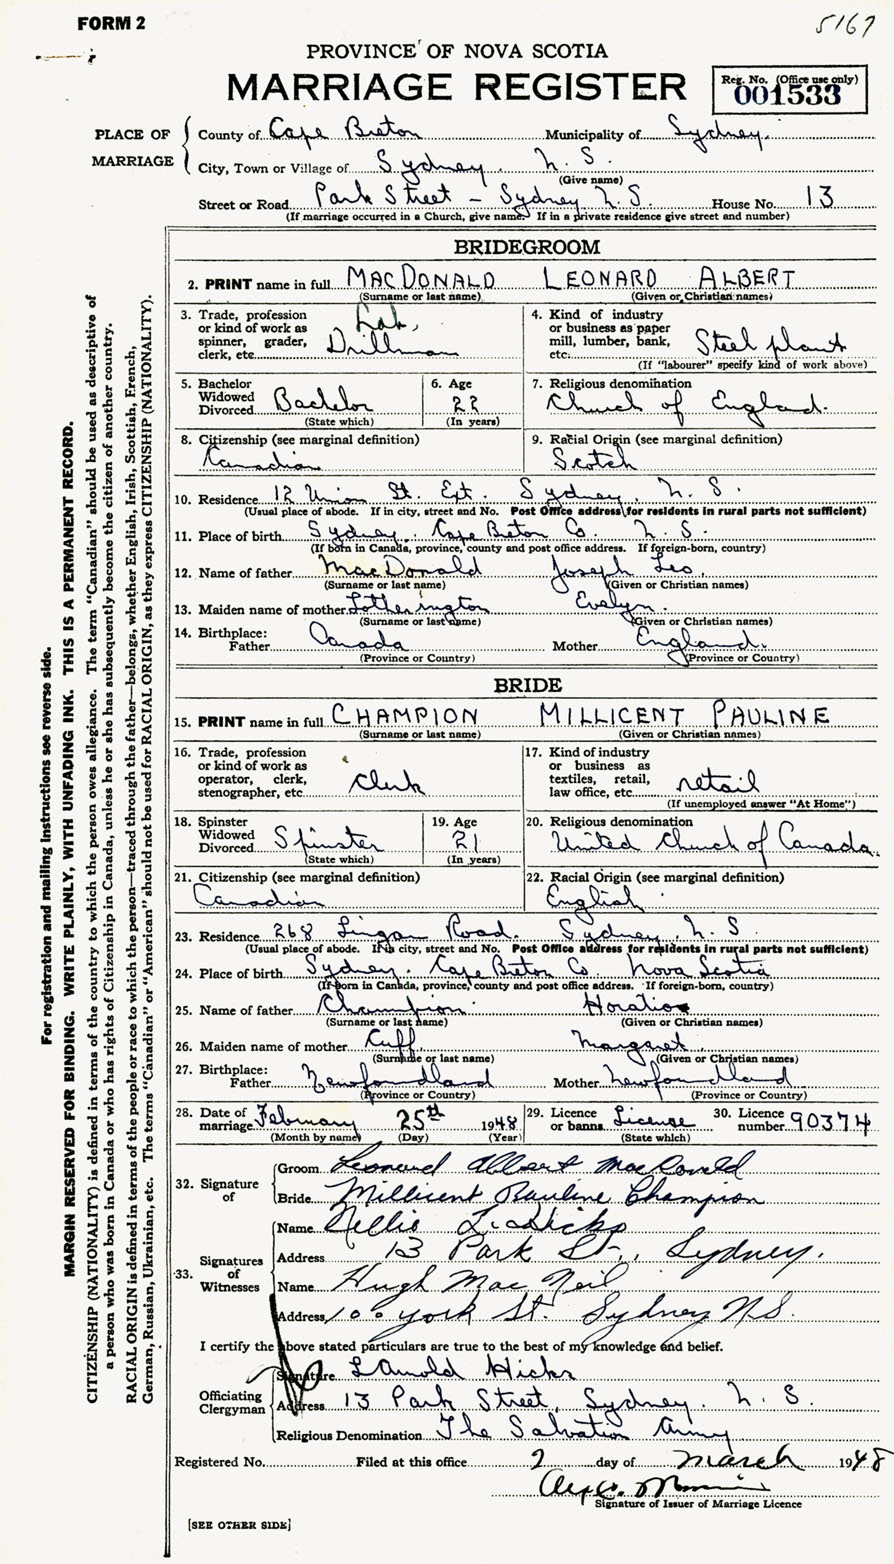 FORM 2
5167
PROVINCE OF NOVA SCOTIA
MARRIAGE REGISTER
Reg. No. (Office use only)
001533
PLACE OF MARRIAGE
County of Cape Breton Municipality of Sydney.
City, Town or Village of Sydney, N. S.
(Give name)
Street or Road Park Street - Sydney N. S. House No. 13
(If marriage occurred in a Church, give name. If in a private residence give street and number)
BRIDEGROOM
2. PRINT name in full MACDONALD LEONARD ALBERT
(Surname or last name) (Given or Christian names)
3. Trade, profession or kind of work as spinner, grader, clerk, etc. Lab, Drillman
4. Kind of industry or business as paper mill, lumber, bank, etc. Steel plant
(If "labourer" specify kind of work above)
5. Bachelor Widowed Divorced Bachelor
(State which)
6. Age 22
(In years)
7. Religious denomination Church of England.
8. Citizenship (see marginal definition) Canadian
9. Racial Origin (see marginal definition) Scotch
10. Residence 12 Union St. Ext. Sydney, N. S.
(Usual place of abode. If in city, street and No. Post Office address for residents in rural parts not sufficient)
11. Place of birth Sydney, Cape Breton Co. N. S.
(If born in Canada, province, county and post office address. If foreign-born, country)
12. Name of father MacDonald Joseph Leo.
(Surname or last name) (Given or Christian names)
13. Maiden name of mother Lotherington Evelyn.
(Surname or last name) (Given or Christian names)
14. Birthplace: Father Canada Mother England.
(Province or Country) (Province or Country)
BRIDE
15. PRINT name in full CHAMPION MILLICENT PAULINE
(Surname or last name) (Given or Christian names)
16. Trade, profession or kind of work as operator, clerk, stenographer, etc. Clerk
17. Kind of industry or business as textiles, retail, law office, etc. retail
(If unemployed answer "At Home")
18. Spinster Widowed Divorced Spinster
(State which)
19. Age 21
(In years)
20. Religious denomination United Church of Canada.
21. Citizenship (see marginal definition) Canadian
22. Racial Origin (see marginal definition) English
23. Residence 268 Lingan Road. Sydney, N. S
(Usual place of abode. If in city, street and No. Post Office address for residents in rural parts not sufficient)
24. Place of birth Sydney, Cape Breton Co. Nova Scotia
(If born in Canada, province, county and post office address. If foreign-born, country)
25. Name of father Champion Horatio
(Surname or last name) (Given or Christian names)
26. Maiden name of mother Cuff Margaret.
(Surname or last name) (Given or Christian names)
27. Birthplace: Father Newfoundland Mother Newfoundland
(Province or Country) (Province or Country)
28. Date of marriage February 25th 1948
(Month by name) (Day) (Year)
29. Licence or banns License
(State which)
30. Licence number 90374
32. Signature of
Groom Leonard Albert MacDonald
Bride Millicent Pauline Champion
33. Signatures of Witnesses
Name Nellie L. Hicks
Address 13 Park St., Sydney.
Name Hugh MacNeil
Address 100 york St. Sydney N.S.
I certify the above stated particulars are true to the best of my knowledge and belief.
Officiating Clergyman
Signature L Arnold Hicks
Address 13 Park Street, Sydney, N. S.
Religious Denomination The Salvation Army
Registered No. Filed at this office 2 day of March 1948
Signature of Issuer of Marriage Licence
[SEE OTHER SIDE]
For registration and mailing instructions see reverse side.
MARGIN RESERVED FOR BINDING. WRITE PLAINLY, WITH UNFADING INK. THIS IS A PERMANENT RECORD.
CITIZENSHIP (NATIONALITY) is defined in terms of the country to which the person owes allegiance. The term "Canadian" should be used as descriptive of
a person who was born in Canada or who has rights of Citizenship in Canada, unless he or she has subsequently become the citizen of another country.
RACIAL ORIGIN is defined in terms of the people or race to which the person—traced through the father—belongs, whether English, Irish, Scottish, French,
German, Russian, Ukrainian, etc. The terms "Canadian" or "American" should not be used for RACIAL ORIGIN, as they express CITIZENSHIP (NATIONALITY).